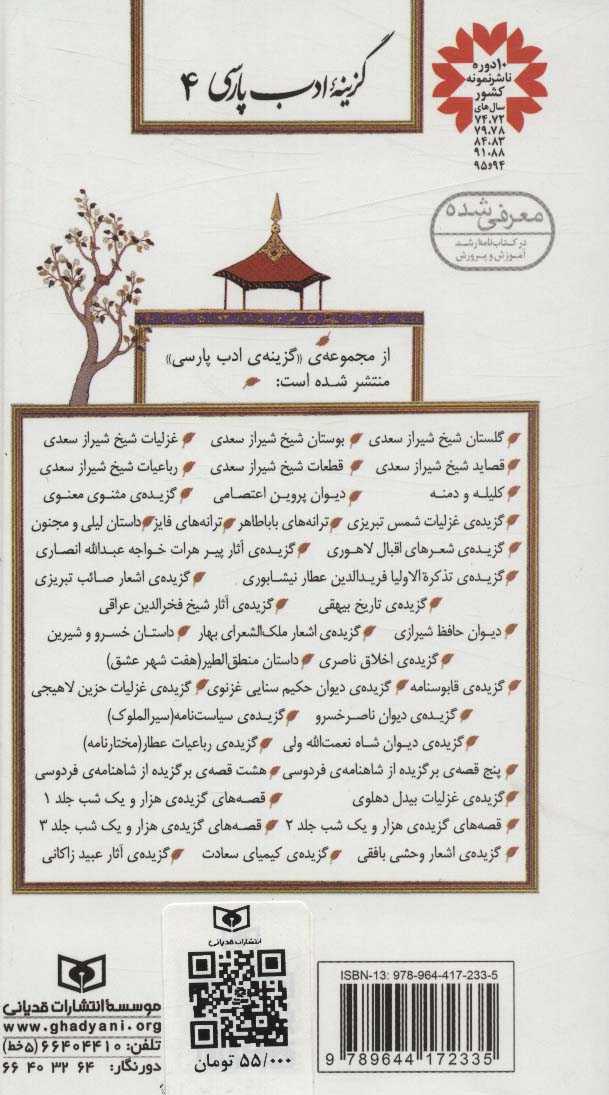 گزینهٔ ادب پارسی ۴
۱۰دوره
ناشرنمونه
کشور
سال‌های
۷۴،۷۲
۷۹،۷۸
۸۴،۸۳
۹۱،۸۸
۹۴و۹۵
معرفی شده
در کتاب‌نامهٔ رشد
آموزش و پرورش
از مجموعه‌ی «گزینه‌ی ادب پارسی»
منتشر شده است:
گلستان شیخ شیراز سعدی بوستان شیخ شیراز سعدی غزلیات شیخ شیراز سعدی
قصاید شیخ شیراز سعدی قطعات شیخ شیراز سعدی رباعیات شیخ شیراز سعدی
کلیله و دمنه دیوان پروین اعتصامی گزیده‌ی مثنوی معنوی
گزیده‌ی غزلیات شمس تبریزی ترانه‌های باباطاهر ترانه‌های فایز داستان لیلی و مجنون
گزیده‌ی شعرهای اقبال لاهوری گزیده‌ی آثار پیر هرات خواجه عبدالله انصاری
گزیده‌ی تذکرة‌الاولیا فریدالدین عطار نیشابوری گزیده‌ی اشعار صائب تبریزی
گزیده‌ی تاریخ بیهقی گزیده‌ی آثار شیخ فخرالدین عراقی
دیوان حافظ شیرازی گزیده‌ی اشعار ملک‌الشعرای بهار داستان خسرو و شیرین
گزیده‌ی اخلاق ناصری داستان منطق‌الطیر(هفت شهر عشق)
گزیده‌ی قابوسنامه گزیده‌ی دیوان حکیم سنایی غزنوی گزیده‌ی غزلیات حزین لاهیجی
گزیده‌ی دیوان ناصرخسرو گزیده‌ی سیاست‌نامه(سیرالملوک)
گزیده‌ی دیوان شاه نعمت‌الله ولی گزیده‌ی رباعیات عطار(مختارنامه)
پنج قصه‌ی برگزیده از شاهنامه‌ی فردوسی هشت قصه‌ی برگزیده از شاهنامه‌ی فردوسی
گزیده‌ی غزلیات بیدل دهلوی قصه‌های گزیده‌ی هزار و یک شب جلد ۱
قصه‌های گزیده‌ی هزار و یک شب جلد ۲ قصه‌های گزیده‌ی هزار و یک شب جلد ۳
گزیده‌ی اشعار وحشی بافقی گزیده‌ی کیمیای سعادت گزیده‌ی آثار عبید زاکانی
انتشارات قدیانی
۵۵/۰۰۰ تومان
ISBN-13: 978-964-417-233-5
9 789644 172335
موسسهٔ انتشارات قدیانی
www.ghadyani.org
تلفن: ۶۶۴۰۴۴۱۰ (۵خط)
دورنگار: ۶۶ ۴۰ ۳۲ ۶۴